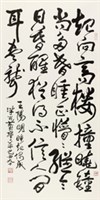 起向高樓撞曉鐘
尚多昏睡正懵懵縱令
日暮醒猶得不信人間
耳盡聾
王陽明睡起偶成